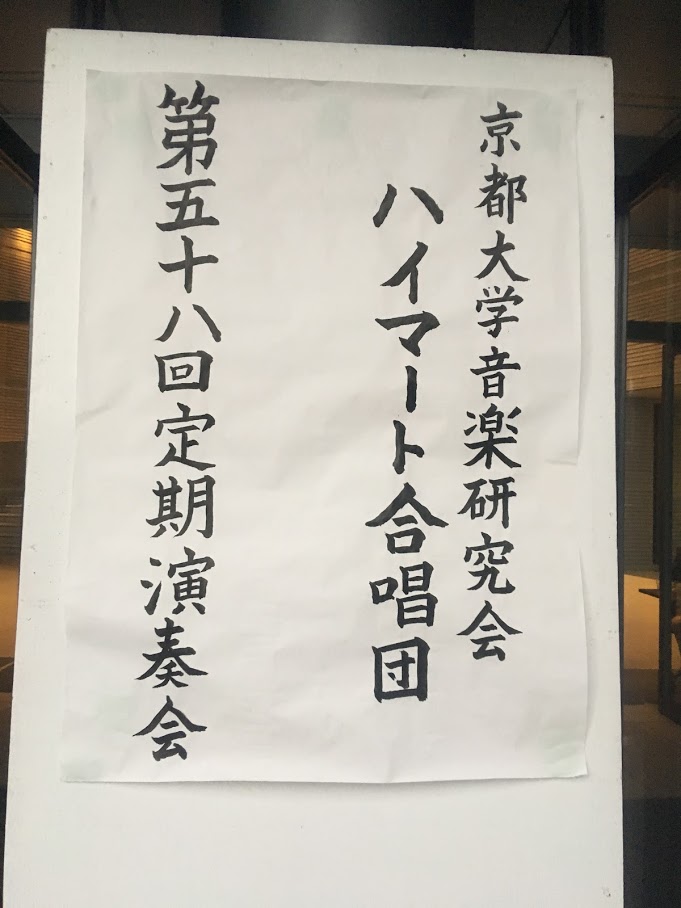 京都大学音楽研究会
ハイマート合唱団
第五十八回定期演奏会